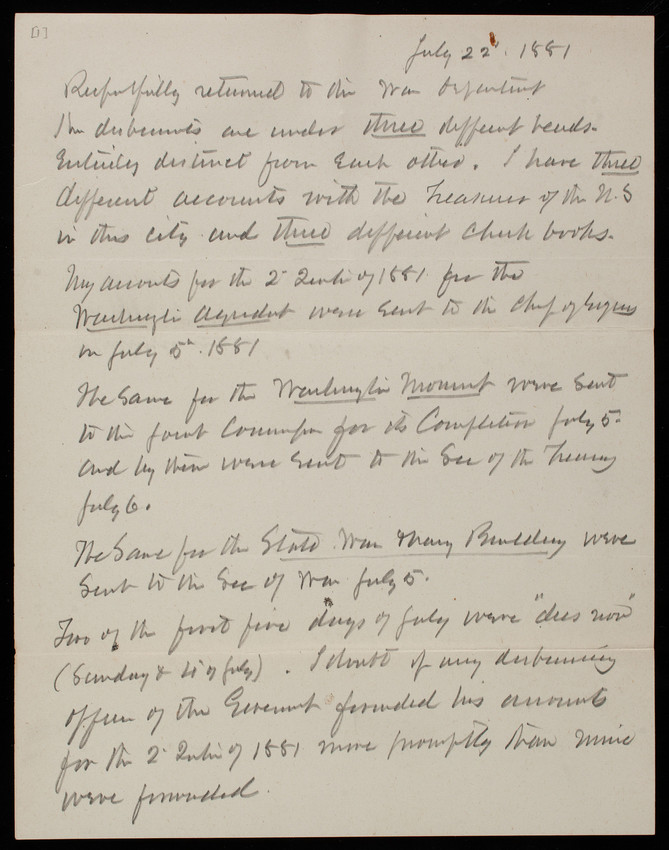 [1]
July 22d. 1881
Respectfully returned to the War Department
My disbursements are under three different heads.
Entirely distinct from each other. I have three
different accounts with the Treasurer of the U.S
in this city and three different check books.
My accounts for the 2d Quarter of 1881 for the
Washington Aqueduct were sent to the Chief of Engrs
on July 5th. 1881
The same for the Washington Monument were sent
to the Joint Commission for its Completion July 5.
and by them were sent to the Sec of the Treasury
July 6.
The same for the State War & Navy Building were
sent to the Sec of War July 5.
Two of the first five days of July were "dies non"
(Sunday & 4 of July). I doubt if any disbursing
officer of the Government forwarded his accounts
for the 2d Quarter of 1881 more promptly than mine
were forwarded.